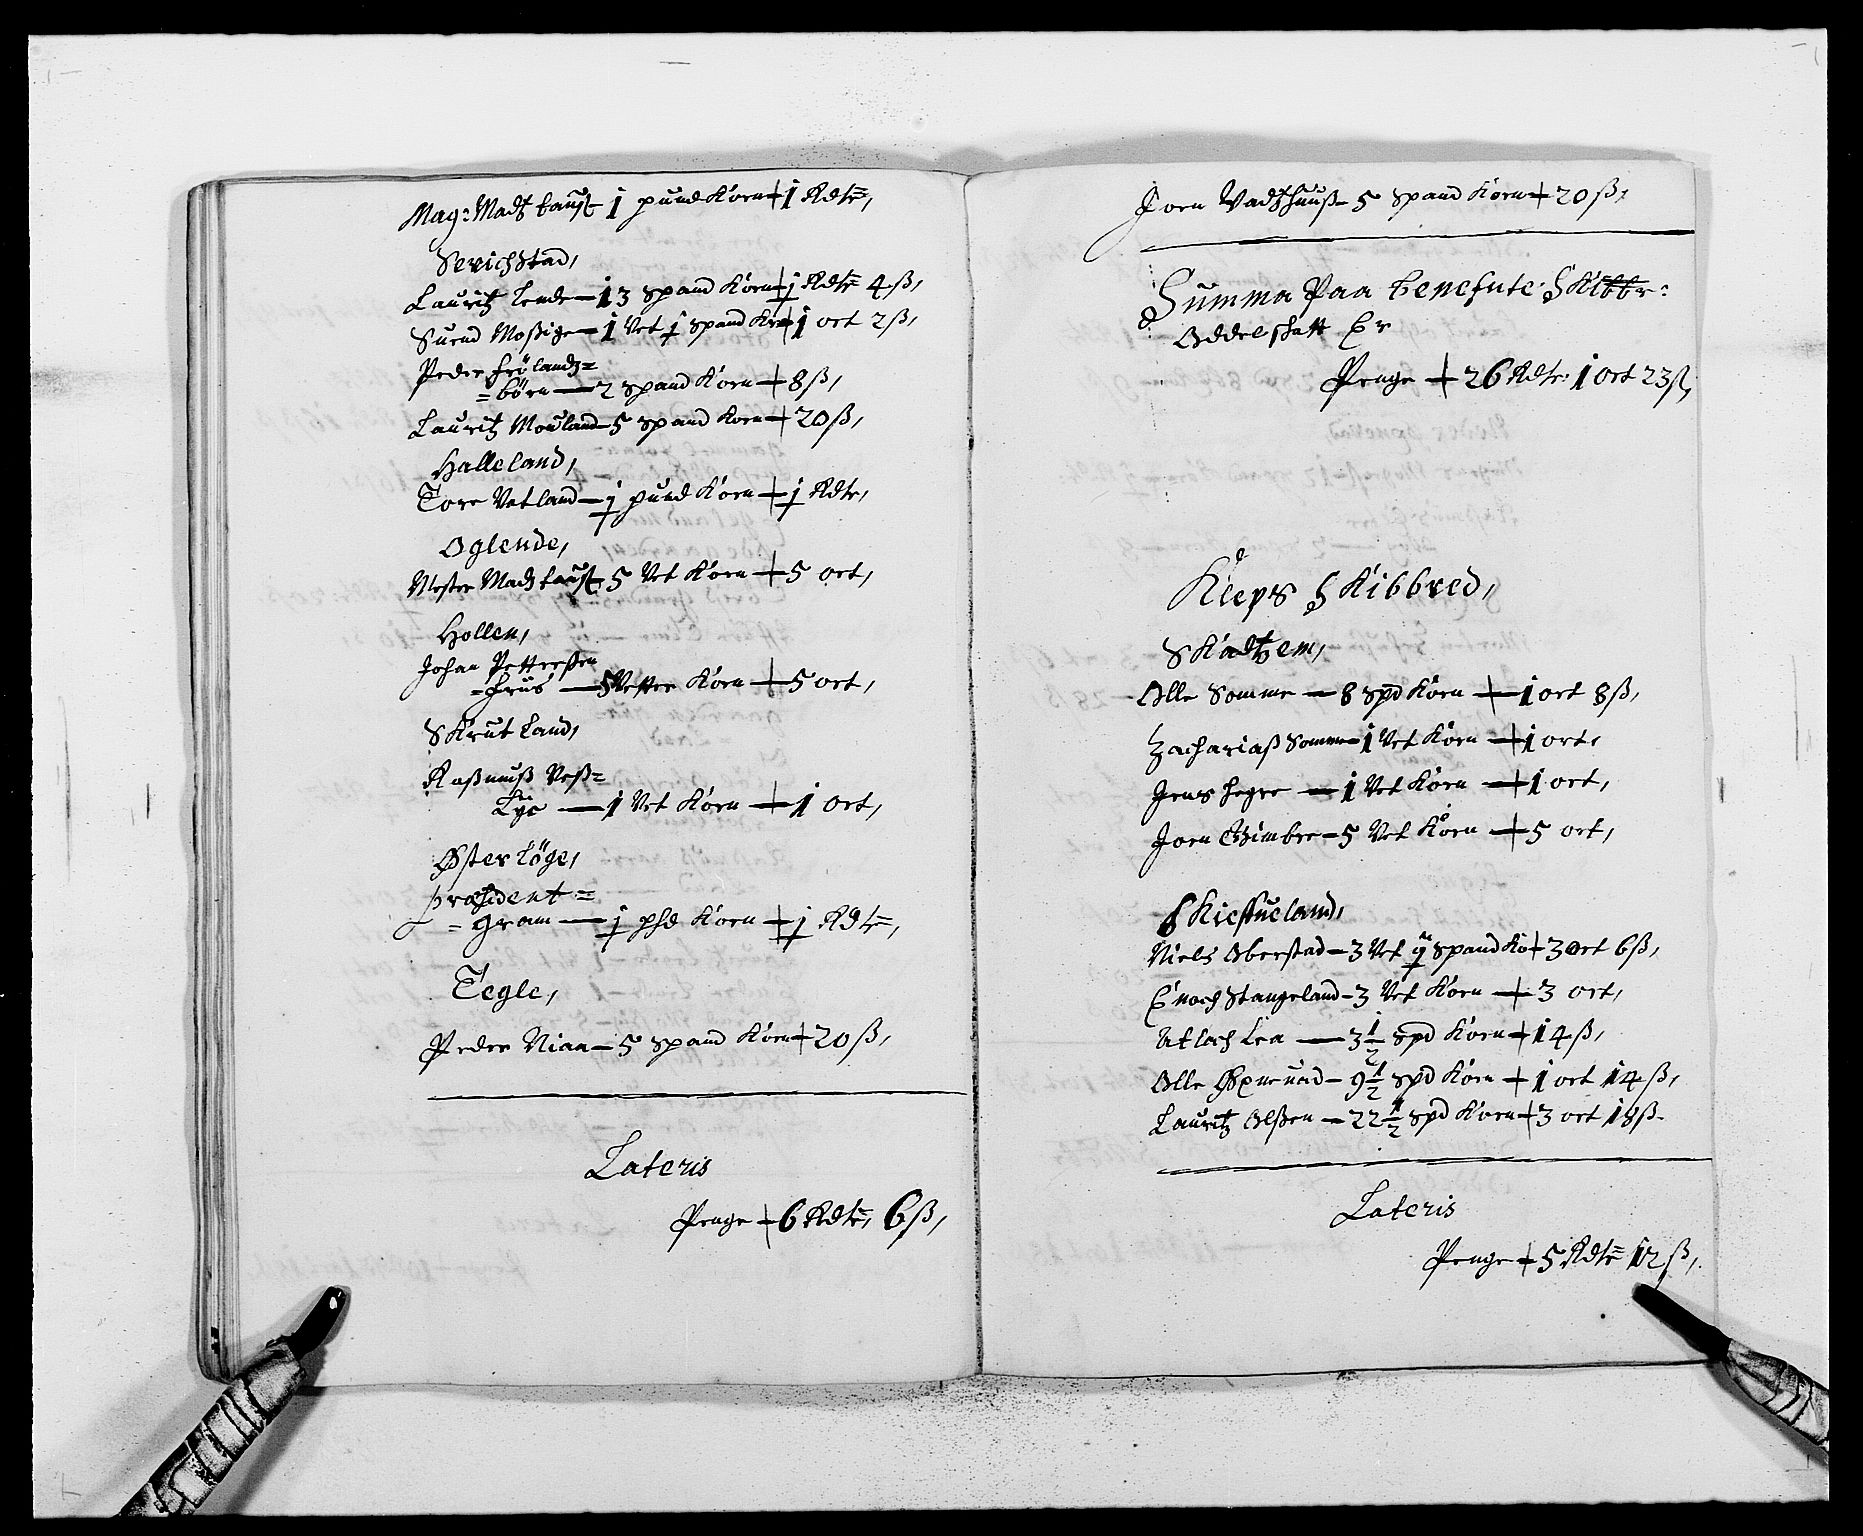 Mag: Madtz taust 1 pund Korn 1 Rdlr,
Serichstad,
Lauritz Lende 13 spand Korn 1 Rdlr 4 ß,
Suend Moßige 1 Vet 1 spand Kor 1 ort 2 ß,
Peder frölandz=
=börn 2 spand Korn 8 ß,
Lauritz Mouland 5 spand Korn 20 ß,
Halleland,
Tore Vetland 1 pund Korn 1 Rdlr,
Oglende,
Mester Madz taust 5 Vet Korn 5 ort,
Hollen,
Johan Petterßen
=friis 5 Vetter Korn 5 ort,
Skrutland,
Raßmuß Veß=
Lye 1 Vet Korn 1 ort,
Østerlöge,
præsident=
=gram 1 phd Korn 1 Rdlr,
Tegle,
Peder Niaa 5 spand Korn 20 ß,
Lateris
Penge 6 Rdlr, 6 ß,
Jorn Vadtzhuuß 5 spand Korn 20 ß,
Summa Paa benefnte Skibbr:
Oddelskatt Er
Penge 26 Rdlr: 1 Ort 23 ß,
Kleps Skibbred,
Skadtzem,
Olle Somme 8 spd Korn 1 ort 8 ß,
Zachariaß Somme 1 Vet Korn 1 ort,
Jens hegre 1 Vet Korn 1 ort,
Jorn Gimbre 5 Vet Korn 5 ort,
Skiefueland,
Niels Oberstad 3 Vet 1½ spand Ko 3 ort 6 ß,
Enoch Stangeland 3 Vet Korn 3 ort,
Atlach Lea 3½ spd Korn 14 ß,
Olle Øxneuad 9½ spd Korn 1 ort 14 ß,
Lauritz Olßen 22½ spd Korn 3 ort 18 ß
Lateris
Penge 5 Rdlr 12 ß,